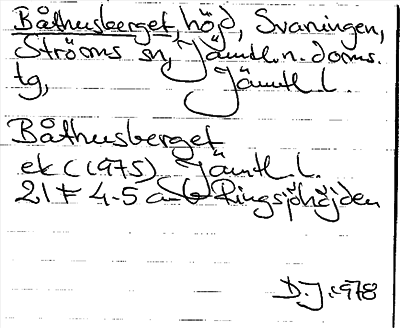 Båthusberget, höjd, Svaningen,
Ströms sn, Jämtl. n. doms.
tg, Jämtl l.
Båthusberget
ek C (1975) Jämtl. l.
21 F 4-5 a-b Ringsjöhöjden
D.J. 1978